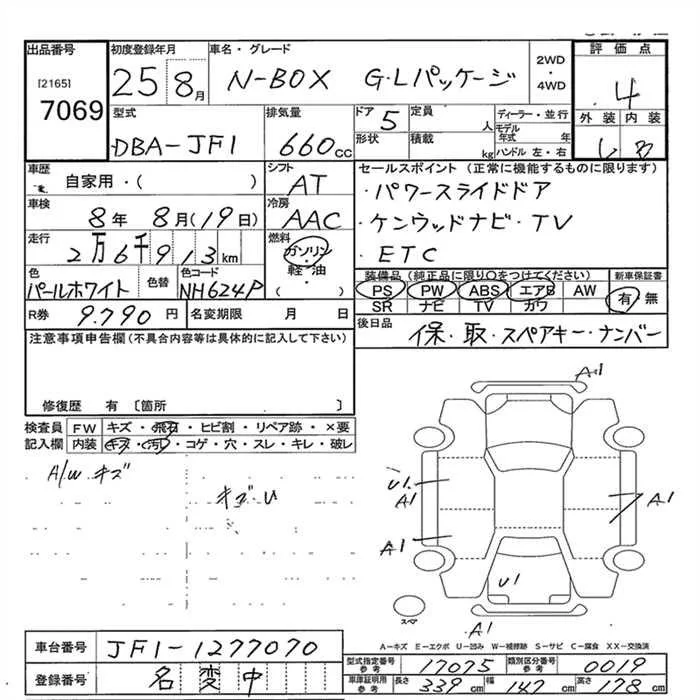 出品番号 初度登録年月 車名・グレード 2WD・4WD 評価点
[2165]
7069 25 8月 N-BOX G・Lパッケージ 4
型式 排気量 ドア 5 定員 人 ディーラー・並行 外装 内装
DBA-JF1 660cc 形状 積載 kg モデル年式 年 ハンドル 左・右 B
車歴 自家用・( ) シフト AT セールスポイント(正常に機能するものに限ります)
車検 8年 8月(19日) 冷房 AAC
・パワースライドドア
・ケンウッドナビ・TV
・ETC
走行 2万6千913km 燃料 ガソリン・軽・油 ( )
色 パールホワイト 色替 色コード NH624P
装備品(純正品に限り○をつけてください) 新車保証書
PS PW ABS エアB AW 有・無
SR ナビ TV カワ
R券 9,790円 名変期限 月 日
後日品 保・取・スペアキー・ナンバー
注意事項申告欄(不具合内容等は具体的に記入して下さい)
修復歴 有 〔箇所 〕
検査員記入欄 FW キズ・飛石・ヒビ割・リペア跡・×要
内装 キズ・汚・コゲ・穴・スレ・キレ・破レ
A/W キズ
キズ U
A1
U1
A1
A1
A1
U1
A1
スペア
A-キズ E-エクボ U-凹み W-補修跡 S-サビ C-腐食 XX-交換済
車台番号 JF1-1277070
登録番号 名変中
型式指定番号 参考 17075 類別区分番号 参考 0019
車庫証明用 参考 長さ 339cm 幅 147cm 高さ 178cm